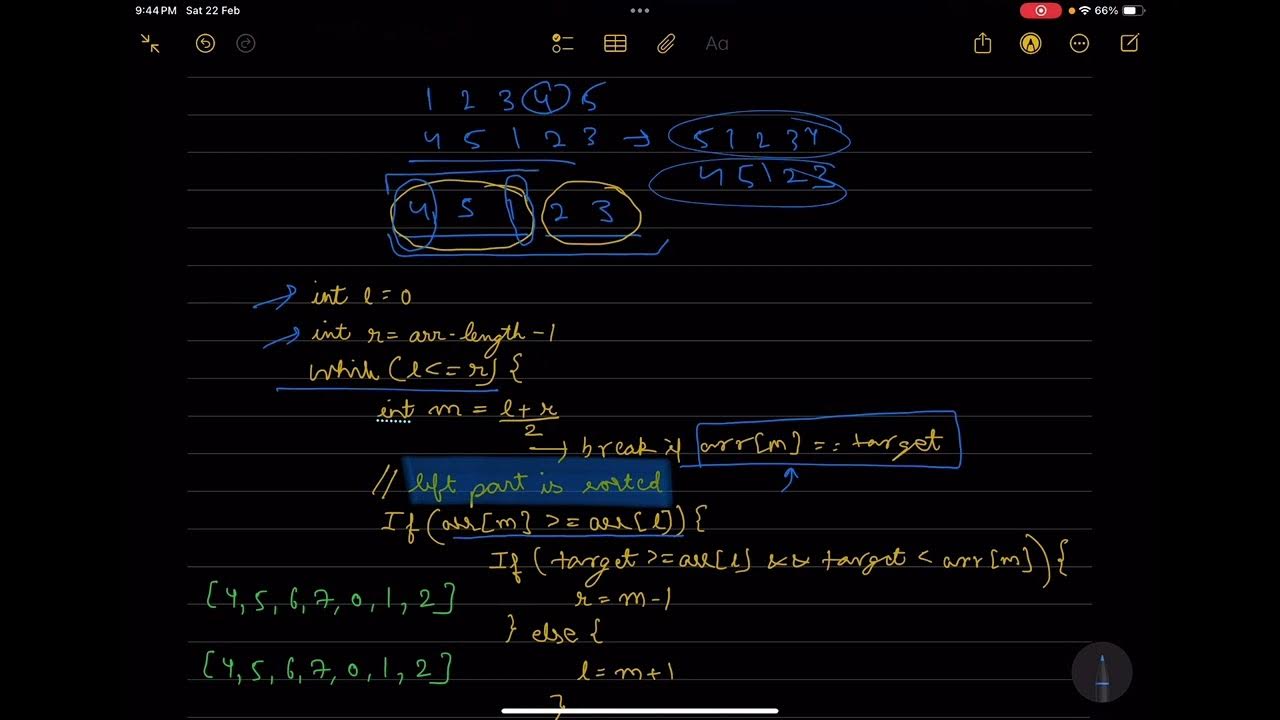 9:44 PM Sat 22 Feb
66%
Aa
1 2 3 4 5
4 5 1 2 3 → 5 1 2 3 4
4 5 1 2 3
4 5 1 2 3
int l = 0
int r = arr-length-1
while (l<=r) {
int m = l+r
2
→ break if arr[m] == target
// left part is sorted
If (arr[m] >= arr[l]) {
If (target >= arr[l] && target < arr[m]) {
[4, 5, 6, 7, 0, 1, 2] r = m-1
} else {
[4, 5, 6, 7, 0, 1, 2] l = m+1
}